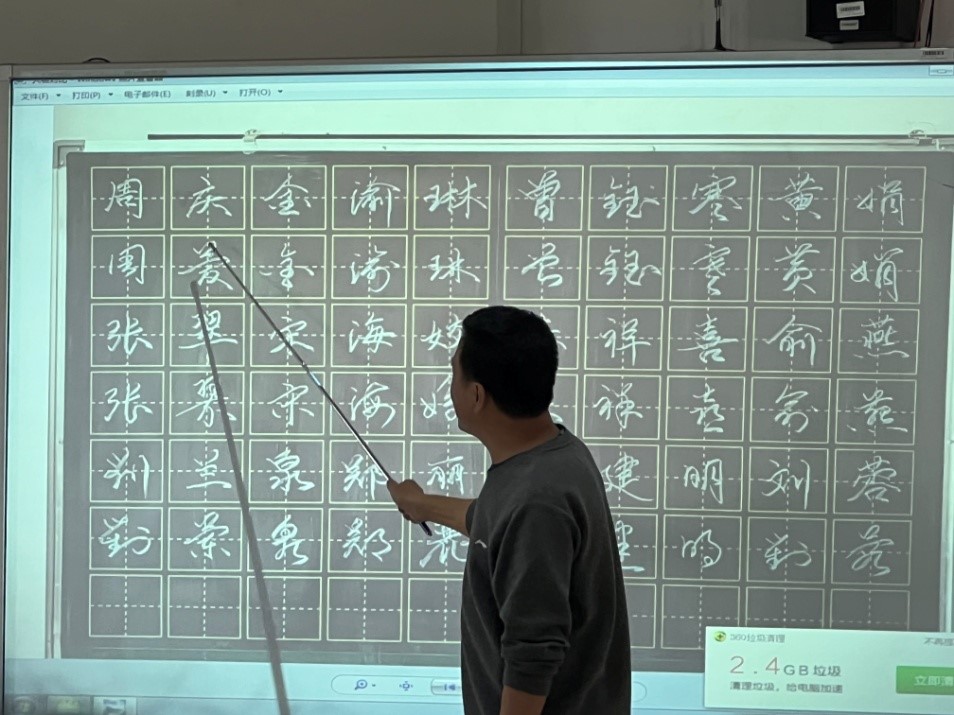 文件(F) 打印(P) 电子邮件(E) 刻录(U) 打开(O)
周 庆 金 渝 琳 曾 钰 寒 黄 娟
周 金 渝 琳 曾 钰 寒 黄 娟
张 翠 宋 海 祥 喜 俞 燕
张 翠 宋 海 祥 喜 俞 燕
刘 兰 泉 郑 丽 建 明 刘 蓉
兰 泉 郑 丽 明 蓉
360垃圾清理
2.4GB垃圾
清理垃圾,给电脑加速
立即清